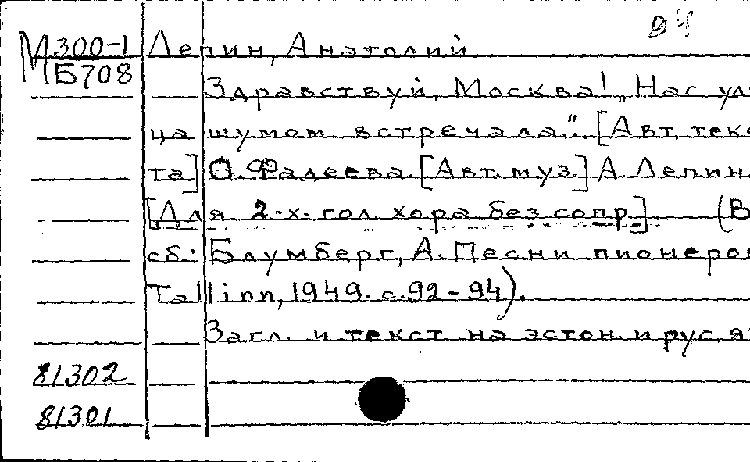 М300-1 Лепин, Анатолий
Б708
Здравствуй, Москва! „Нас ули
ца шумом встречала". [Авт. текс
та] О. Фадеева. [Авт. муз.] А. Лепин.
[Для 2-х. гол. хора без сопр.] (В
сб.: Блумберг, А. Песни пионеров
Tallinn, 1949. с. 92-94).
Загл. и текст на эстон. и рус. яз
81302
81301